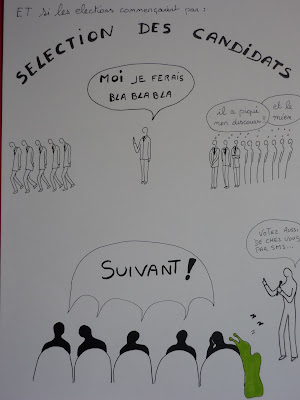 ET si les elections commençaient par :
SELECTION DES CANDIDATS
MOI JE FERAIS
BLA BLA BLA
il a piqué
mon discours!
et le
mien
VOTEZ AUSSI
DE CHEZ VOUS
PAR SMS...
SUIVANT!
z
z
z